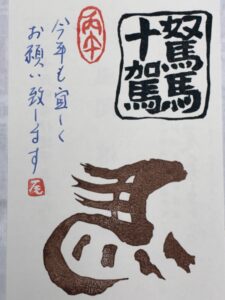 駑馬
十駕
丙午
今年も宜しく
お願い致します
尾